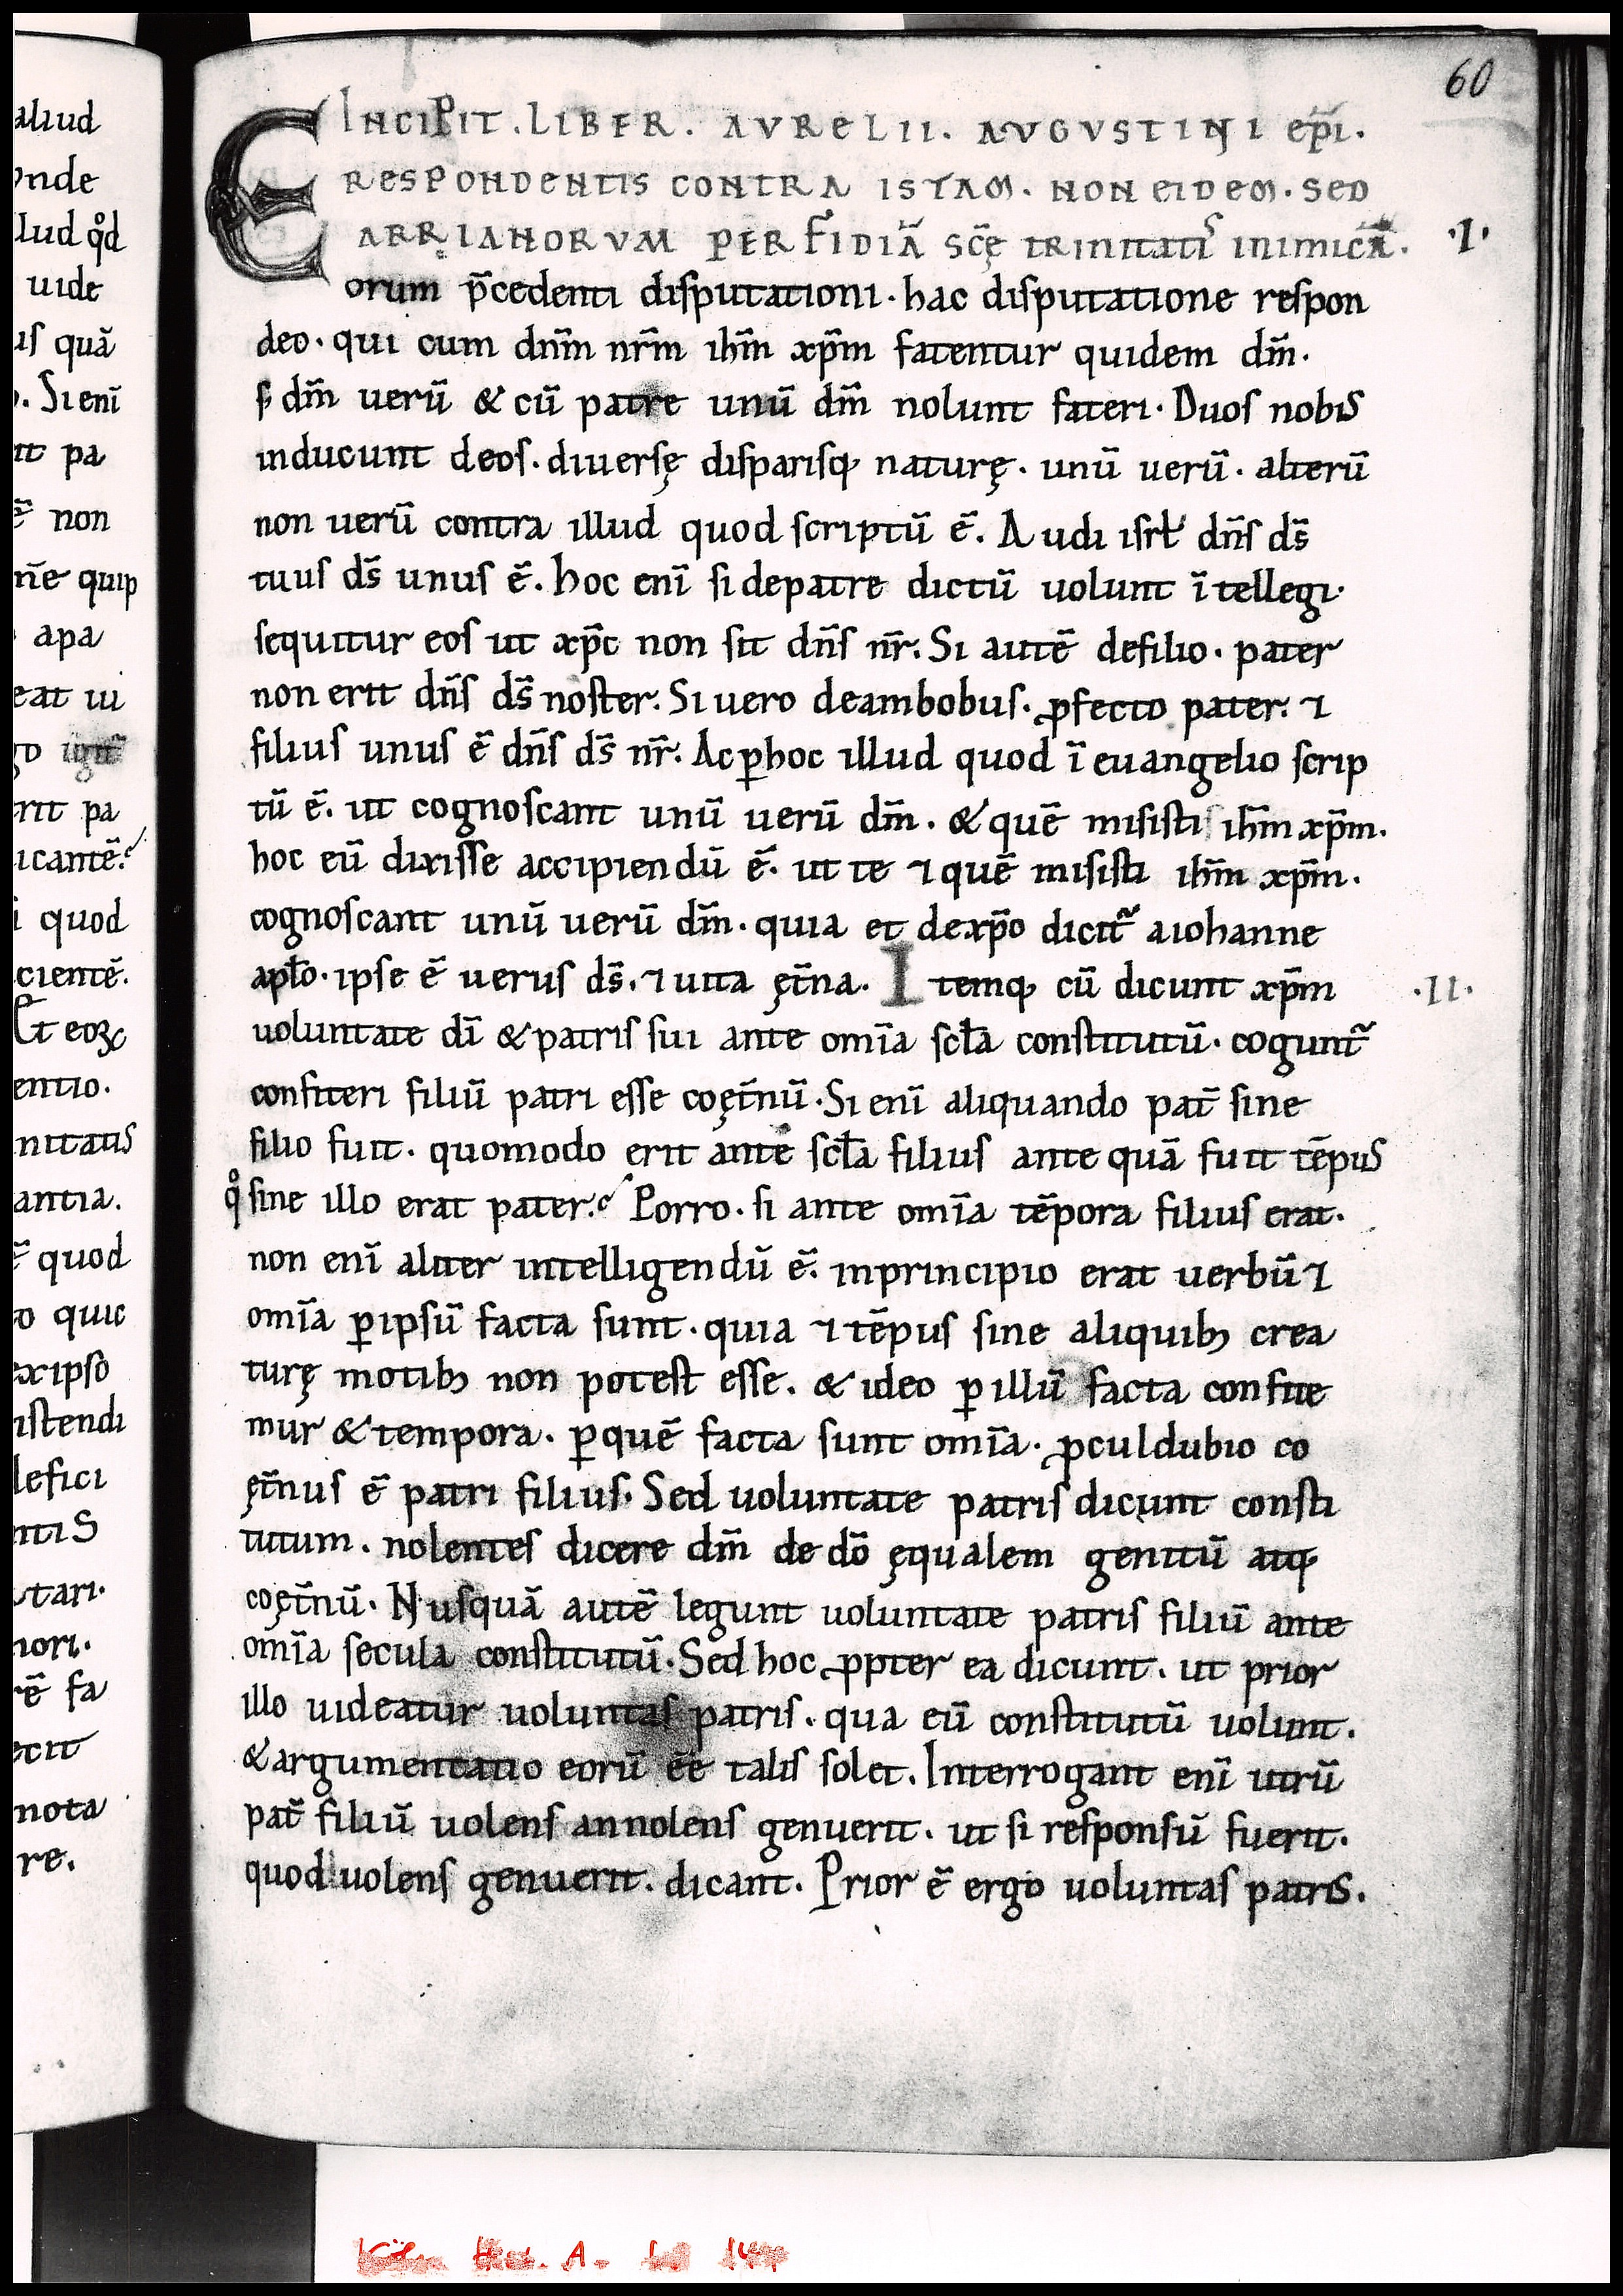 60
INCIPIT . LIBER . AVRELII . AVGVSTINI ep̄i .
RESPONDENTIS CONTRA ISTAM . NON EIDEM . SED
ARRIANORVM PERFIDIĀ SCĘ̄ TRINITATIS INIMICĀ . ·I·
Eorum p̄cedenti disputationi · hac disputatione respon
deo · qui cum dn̄m nr̄m ih̄m xp̄m fatentur quidem dm̄ ·
s; dm̄ uerū & cū patre unū dm̄ nolunt fateri · Duos nobis
inducunt deos . diuersę disparisq; naturę . unū uerū . alterū
non uerū contra illud quod scriptū ē . Audi isrł dn̄s ds̄
tuus ds̄ unus ē . hoc enī si depatre dictū uolunt ītellegi ·
sequitur eos ut xp̄c non sit dn̄s nr̄ . Si autē defilio . pater
non erit dn̄s ds̄ noster . Si uero deambobus . ꝓfecto pater . ⁊
filius unus ē dn̄s ds̄ nr̄ . Ac ꝑhoc illud quod ī euangelio scrip
tū ē . ut cognoscant unū uerū dm̄ . & quē misisti ih̄m xp̄m .
hoc eū dixisse accipiendū ē . ut te ⁊ quē misisti ih̄m xp̄m .
cognoscant unū uerū dm̄ . quia et dexp̄o dicit̃ aiohanne
apło . ipse ē uerus ds̄ . ⁊ uita ęt̄na . Itemq; cū dicunt xp̄m ·II·
uoluntate dī & patris sui ante omīa scła constitutū . cogunt̃
confiteri filiū patri esse coęt̄nū . Si enī aliquando pat̄ sine
filio fuit . quomodo erit ante scła filius ante quā fuit tēpus
qͦ sine illo erat pater ? Porro . si ante omīa tēpora filius erat .
non enī aliter intelligendū ē . inprincipio erat uerbū ⁊
omīa ꝑipsū facta sunt . quia ⁊ tēpus sine aliquib; crea
turę motib; non potest esse . & ideo ꝑ illū facta confite
mur & tempora . ꝑquē facta sunt omīa . ꝓculdubio co
ęt̄nus ē patri filius . Sed uoluntate patris dicunt consti
tutum . nolentes dicere dm̄ de dō ęqualem genitū atq;
coęt̄nū . Nusquā autē legunt uoluntate patris filiū ante
omīa secula constitutū . Sed hoc ꝓpter ea dicunt . ut prior
illo uideatur uoluntas patris . qua eū constitutū uolunt .
& argumentatio eorū ēe talis solet . Interrogant enī utrū
pat̄ filiū uolens annolens genuerit . ut si responsū fuerit .
quod uolens genuerit . dicant . Prior ē ergo uoluntas patris .